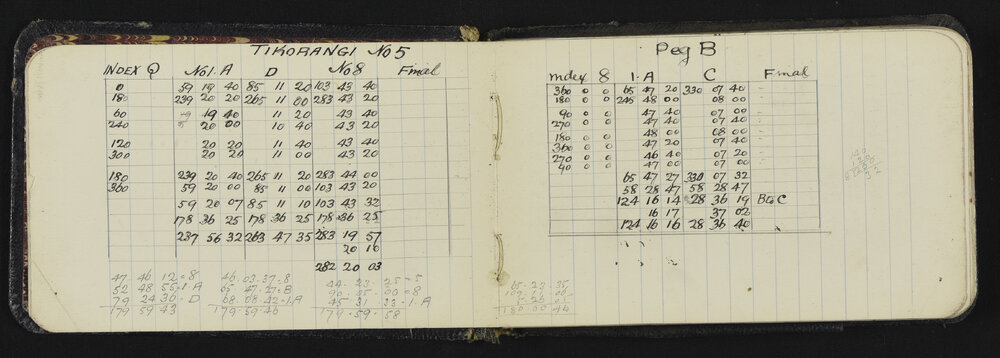 TIKORANGI No 5
INDEX Q No1.A D No 8 Final
0 59 19 40 85 11 20 103 43 40
180 239 20 20 265 11 00 283 43 20
60 19 40 11 20 43 40
240 20 00 10 40 43 20
120 20 20 11 40 43 40
300 20 20 11 00 43 20
180 239 20 40 265 11 20 283 44 00
360 59 20 00 85 11 00 103 43 20
59 20 07 85 11 10 103 43 32
178 36 25 178 36 25 178 36 25
237 56 32 263 47 35 283 19 57
20 10
282 20 03
47 46 12 = 8
52 48 55 = 1.A
79 24 36 - D
179 59 43
46 03 37 = 8
65 47 27 = B
68 08 42 = 1.A
179 - 59 - 46
44 - 23 - 25 = 5
90 - 05 - 00 = 8
45 31 33 = 1. A
179 - 59 - 58
Peg B
Index 8 1.A C Final
360 0 0 65 47 20 330 07 40
180 0 0 245 48 00 08 00
90 0 0 47 40 07 00
270 0 0 47 40 07 40
180 0 0 48 00 08 00
360 0 0 47 20 07 40
270 0 0 46 40 07 20
90 0 0 47 00 07 00
65 47 27 330 07 32
58 28 47 58 28 47
124 16 14 28 36 19 B to C
16 17 37 02
124 16 16 28 36 40
180 00 44